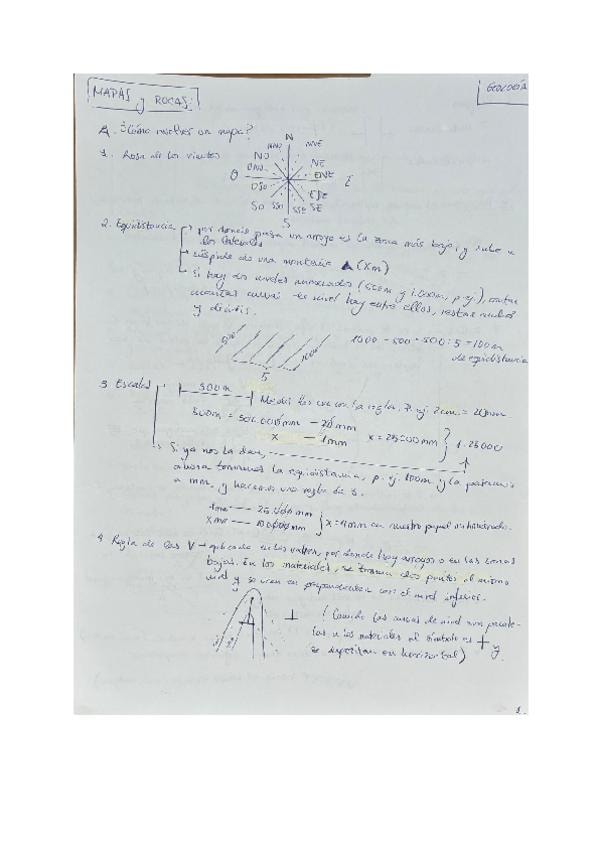 MAPAS y ROCAS
GEOLOGÍA
A. ¿Cómo resolver un mapa?
1. Rosa de los vientos
N
NNO NNE
NO NE
ONO ENE
O E
OSO ESE
SO SSO SSE SE
S
2. Equidistancia
por donde pasa un arroyo es la zona más baja, y sube a
los laterales
cúspide de una montaña (Xm)
Si hay dos niveles numerados (500m y 1.000m, p. ej.), contar
cuantas curvas de nivel hay entre ellos, restar
y dividir.
500 1000
5
1000 - 500 = 500 : 5 = 100m
de equidistancia
3. Escalas
500m
Medir con la regla. P. ej. 2cm = 20mm
500m = 500.000mm — 20mm
x — 1mm x = 25000mm } 1:25000
Si ya nos la dan,
ahora tenemos la equidistancia, p. ej. 100m y la pasamos
a mm, y hacemos una regla de 3.
1mm — 25.000mm
Xmm — 100.000mm } x = 4mm en nuestro papel milimetrado.
4. Regla de las V → aplicada en los valles, por donde hay arroyos o en las zonas
bajas. En los materiales, se toman dos puntos al mismo
nivel y se unen en perpendicular con el nivel inferior.
(Cuando las curvas de nivel son parale-
las a los materiales el símbolo es + y
se depositan en horizontal)
1.